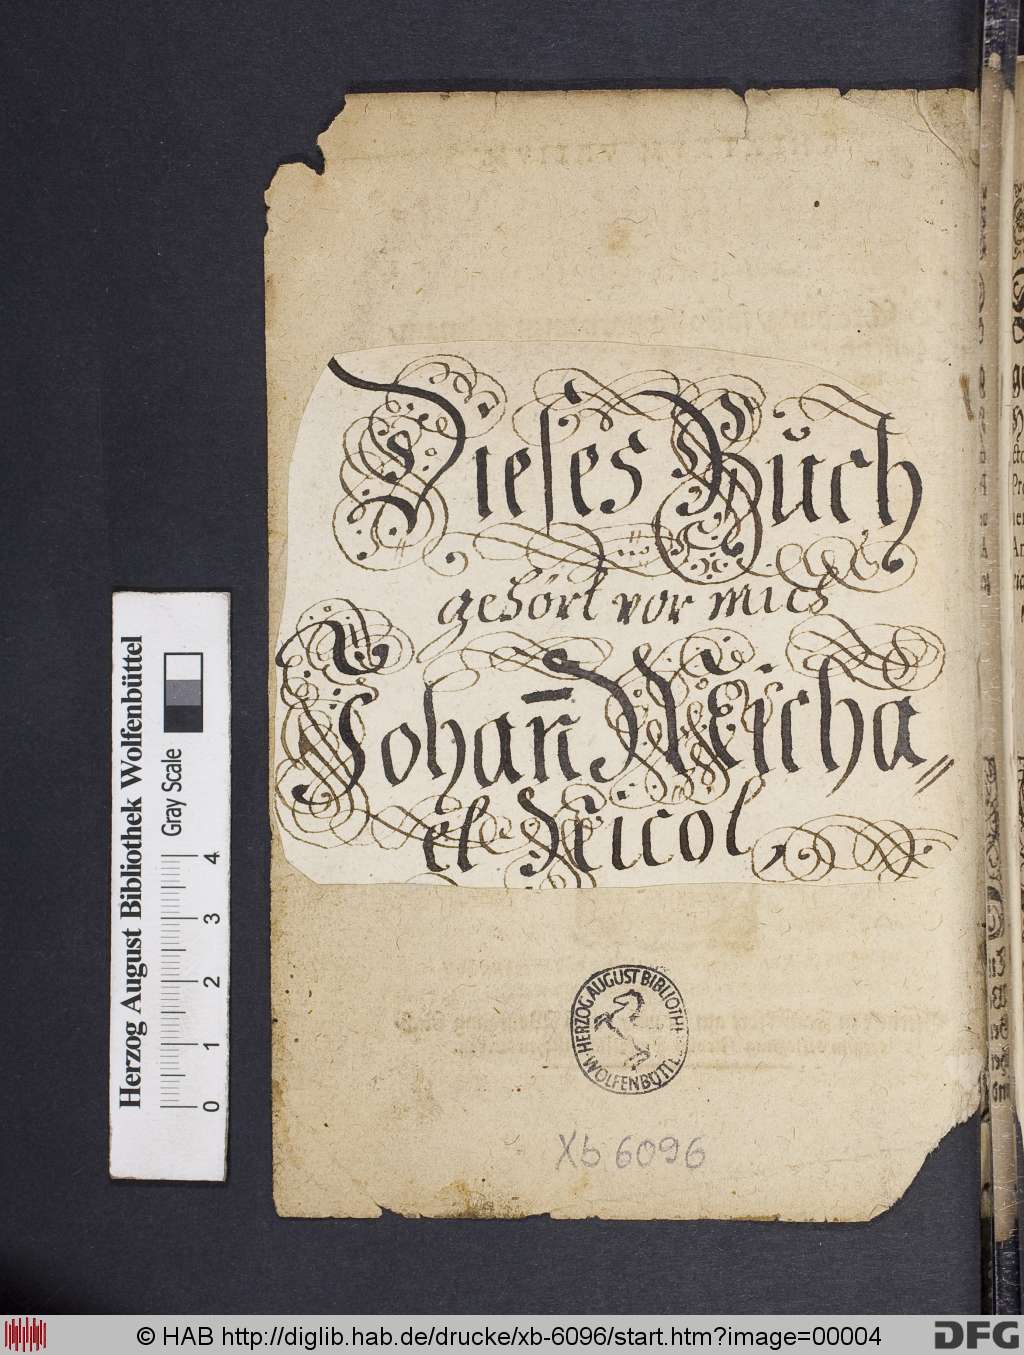 Dieses Buch
gehört vor mich
Johan̄ Micha=
el Nicol,
HERZOG AUGUST BIBLIOTH
WOLFENBÜTTL
Xb 6096
Herzog August Bibliothek Wolfenbüttel
Gray Scale
0 1 2 3 4
© HAB http://diglib.hab.de/drucke/xb-6096/start.htm?image=00004
DFG